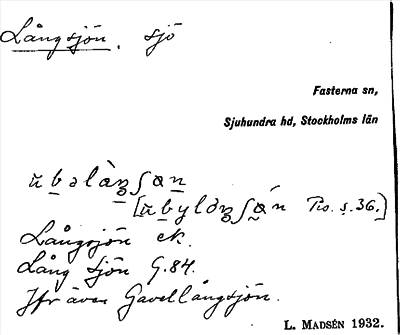 Långsjön. sjö
Fasterna sn,
Sjuhundra hd, Stockholms län
Pro. s. 36.]
Långsjön ek.
Lång Sjön G. 84.
Jfr även Gavellångsjön.
L. MADSÉN 1932.